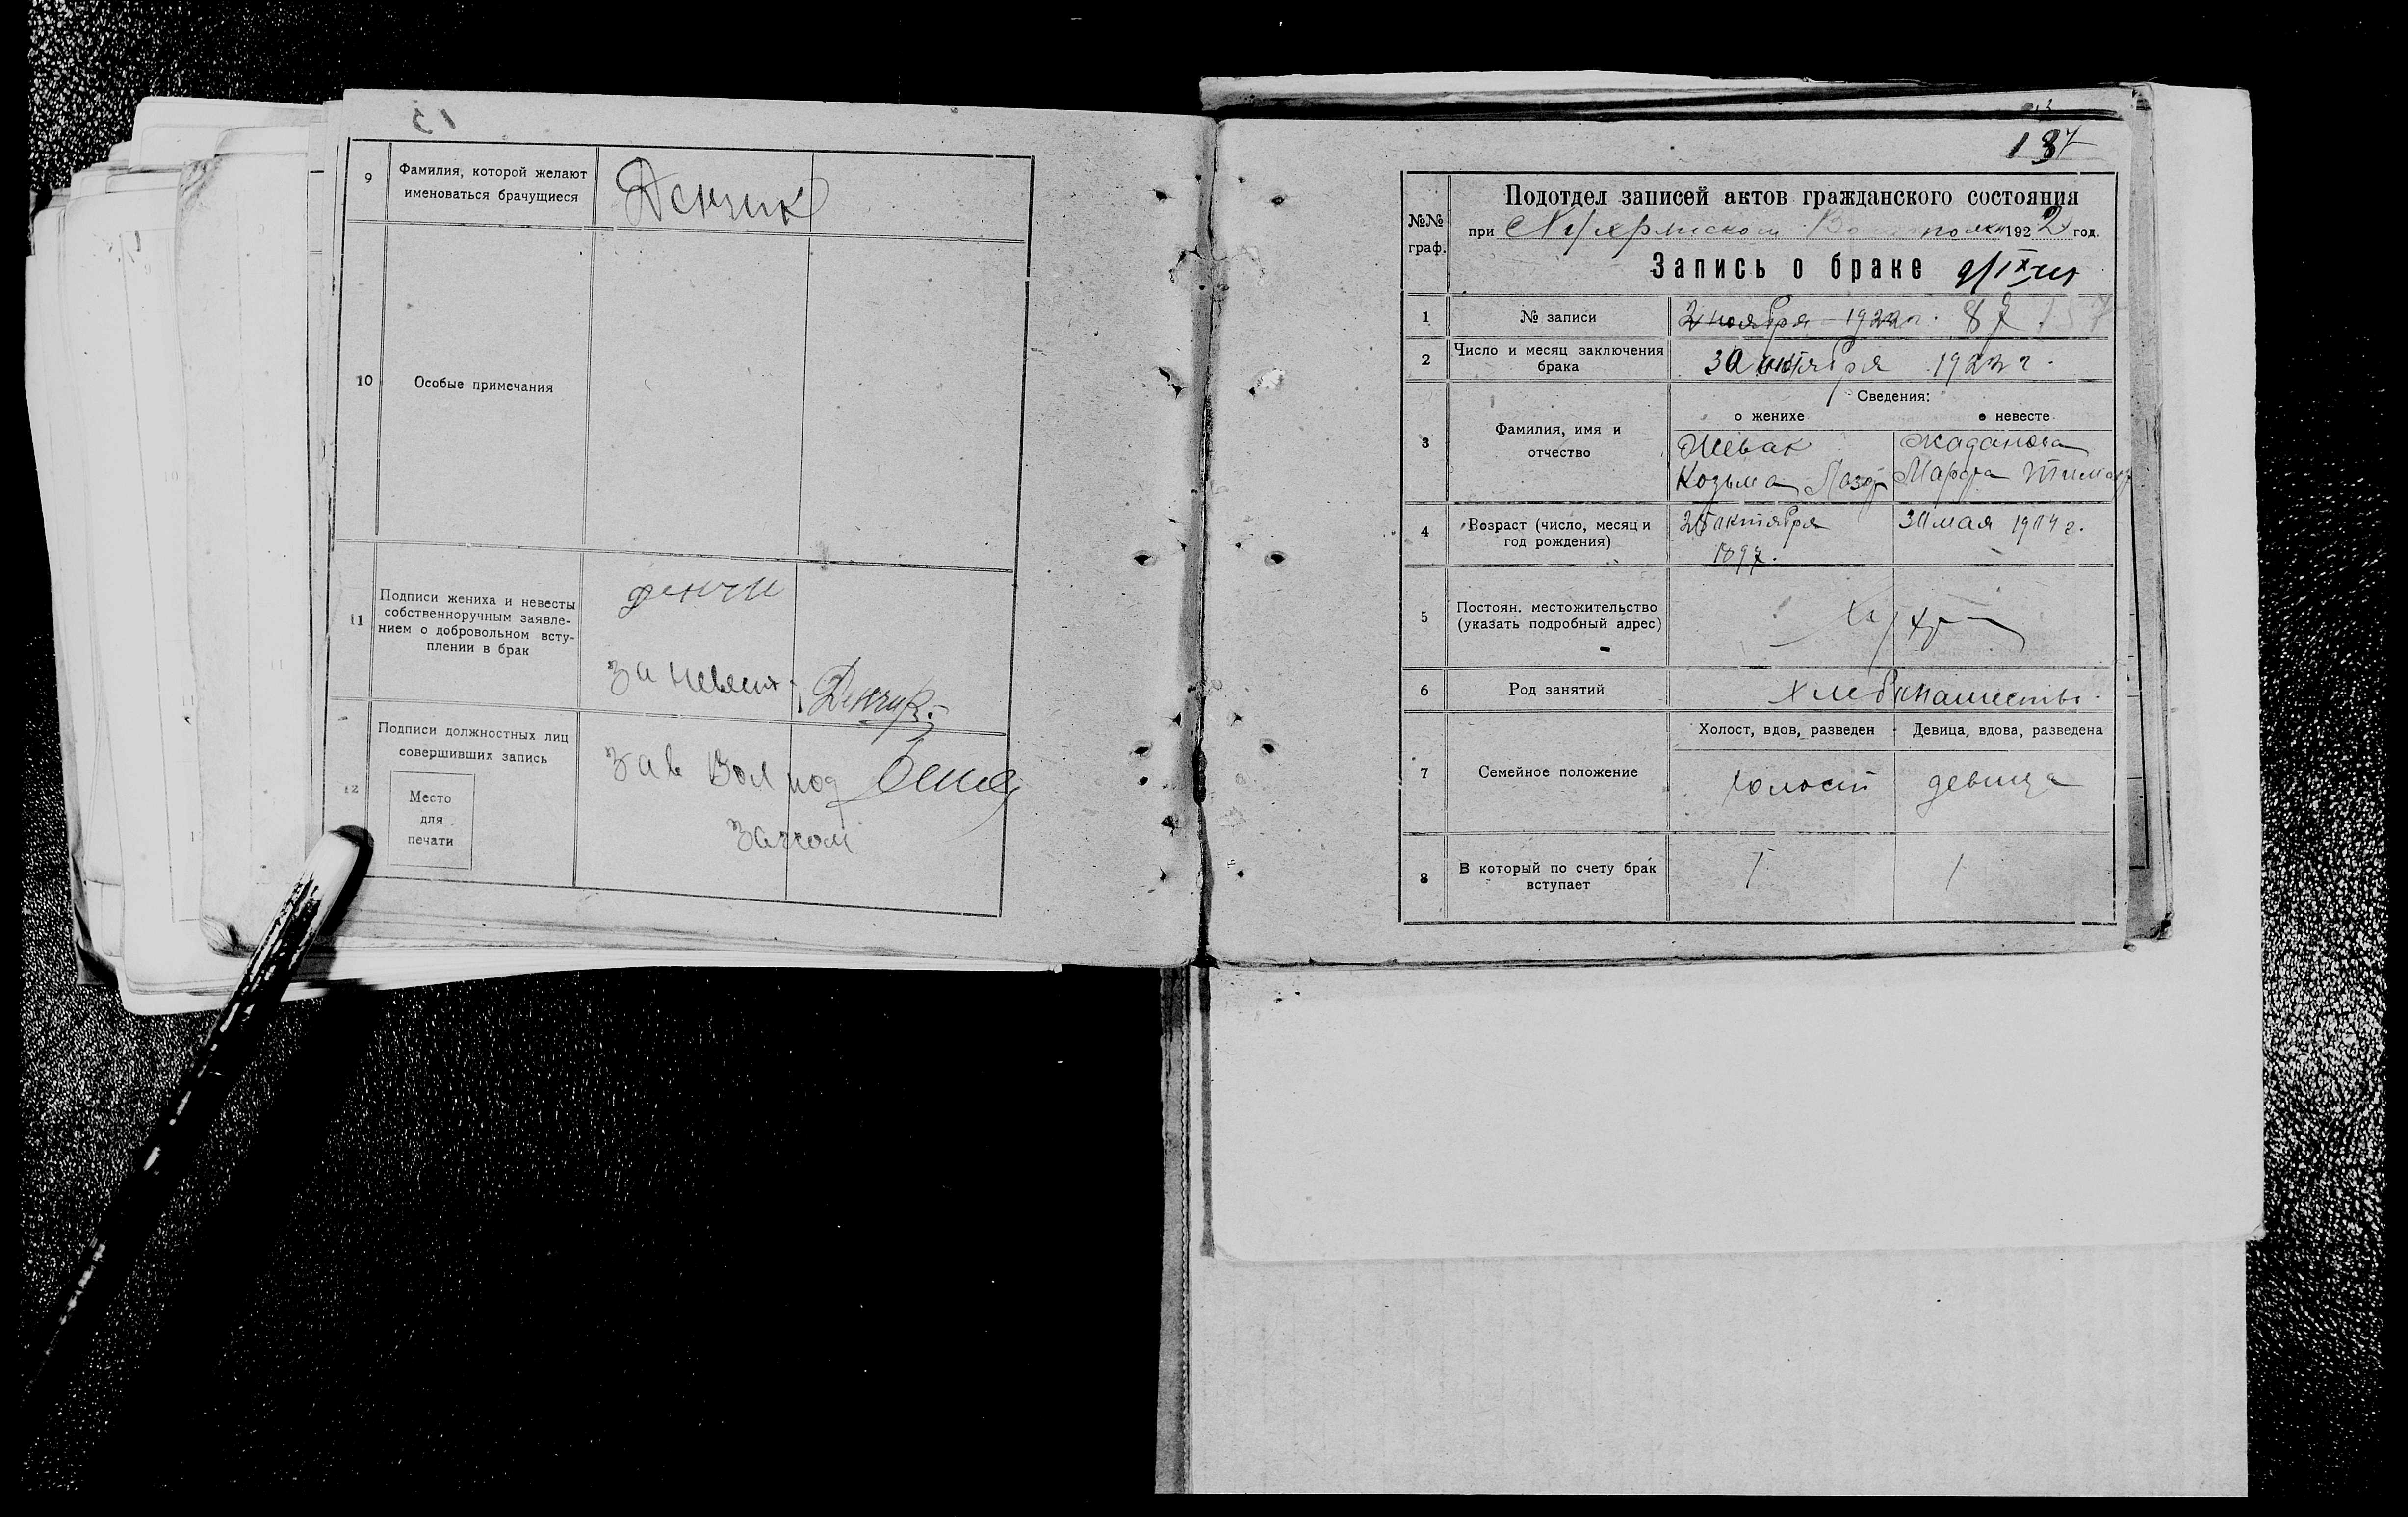 9
Фамилия, которой желают
именоваться брачущиеся
Денчик
10
Особые примечания
11
Подписи жениха и невесты
собственноручным заявле-
нием о добровольном всту-
плении в брак
денчи
за невест
Денчик
12
Подписи должностных лиц
совершивших запись
Место
для
печати
Зав Вол под
Загсом
187
№№
граф.
Подотдел записей актов гражданского состояния
при 1922 год.
Запись о браке
1
№ записи
2 ноября 1922 г. 87
2
Число и месяц заключения
брака
30 октября 1922 г.
3
Фамилия, имя и
отчество
Сведения:
о женихе
о невесте
Шевак
Козьма Лазар
Жаданова
Марфа Тимоф
4
Возраст (число, месяц и
год рождения)
октября
1897.
30 мая 1904 г.
5
Постоян. местожительство
(указать подробный адрес)
6
Род занятий
хлебопашество
7
Семейное положение
Холост, вдов, разведен
Девица, вдова, разведена
холост
девица
8
В который по счету брак
вступает
1
1